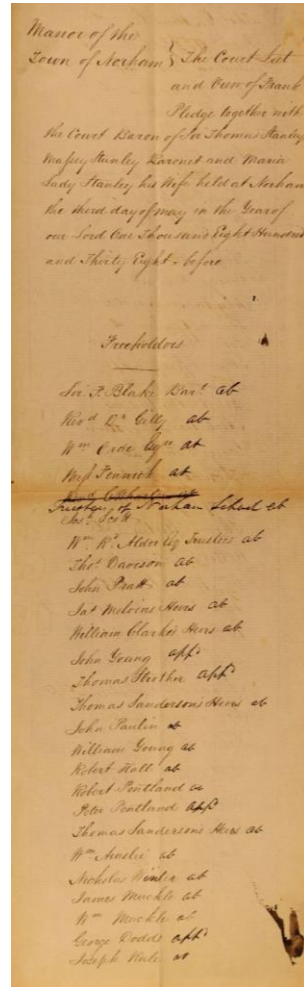 Manor of the
Town of Norham } The Court Leet
and View of Frank
Pledge together with
the Court Baron of Sir Thomas Stanley
Massey Stanley Baronet and Maria
Lady Stanley his Wife held at Norham
the third day of May in the Year of
our Lord One Thousand Eight Hundred
and Thirty Eight - before
Freeholders
Sir F. Blake Bart ab
Revd Dr Gilly ab
Wm Orde Esqr ab
Fenwick ab
Trustees of Norham School ab
Jas. Scott
Wm. Rt. Alder by Trustees ab
Thos. Davison ab
John Pratt ab
Jas Melvins Heirs ab
William Clarkes Heirs ab
John Young appd
Thomas Strother appd
Thomas Sandersons Heirs ab
John Paulin ab
William Young ab
Robert Hall ab
Robert Pentland ab
Peter Pentland appd
Thomas Sandersons Heirs ab
Wm Ainslie ab
Nicholas Winter ab
James Muckle ab
Wm Muckle ab
George Dodds appd
Joseph ab